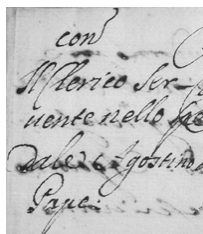 con
Il Clerico Ser-
uente nello Spe
dale Agostino
Pape: